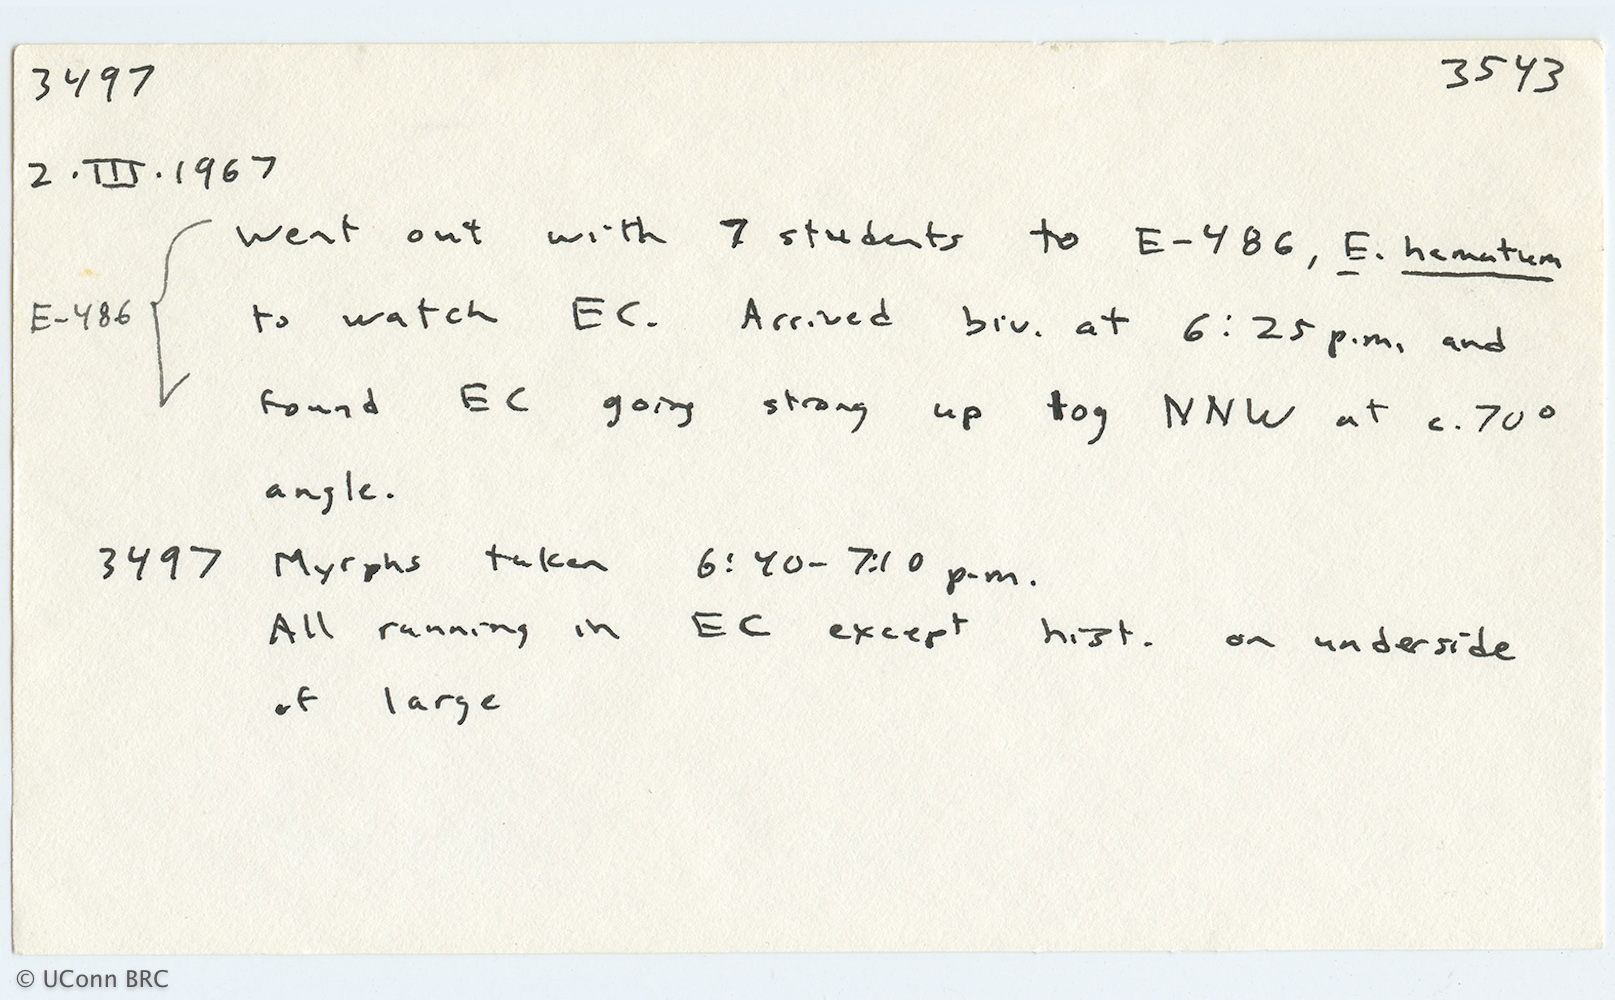 3497 3543
2.III.1967
Went out with 7 students to E-486, E. hamatum
E-486 to watch EC. Arrived biv. at 6:25 p.m. and
found EC going strong up log NNW at c. 70°
angle.
3497 Myrphs taken 6:40-7:10 p.m.
All running in EC except hist. on underside
of large
© UConn BRC